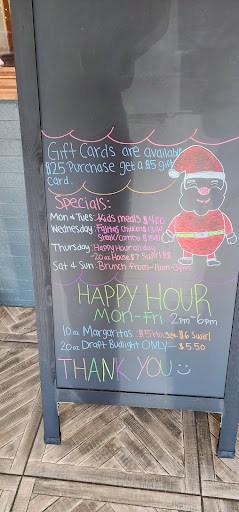 Gift Cards are available
$25 Purchase get a $5 gift
card.
Specials:
Mon & Tues: Kids meals $4.00
Wednesday: Fajitas Chicken
Steak/Combo
Thursday: Happy Hour all day
-20oz House $7 Swirl $8
Sat & Sun: Brunch from 11am-3pm
HAPPY HOUR
MON-Fri 2pm-6pm
10oz Margaritas $5 House $6 Swirl
20oz Draft Budlight ONLY— $5.50
THANK YOU